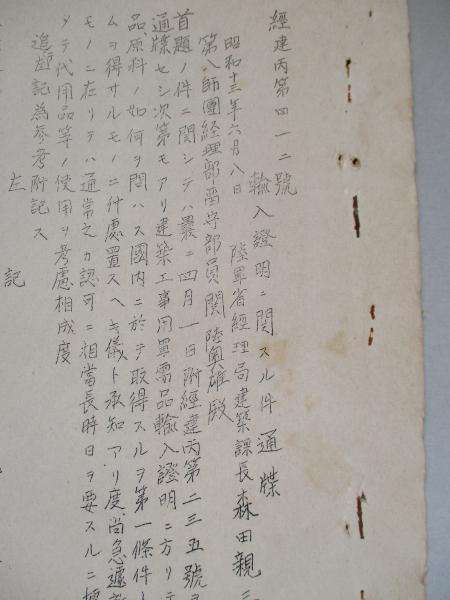 經建丙第四一二號
輸入證明ニ關スル件 通牒
昭和十三年六月八日
陸軍省經理局建築課長森田親三
第八師團經理部留守部員關陸奥雄殿
首題ノ件ニ關シテハ曩ニ四月一日附經建丙第二三五號
通牒セシ次第モアリ建築工事用軍需品輸入證明ニ方リテ
品、原料ノ如何ヲ問ハス國内ニ於テ取得スルヲ第一條件ト
ムヲ得サルモノニ付處置スヘキ儀ト承知アリ度尚急遽
モノニ在リテハ通常之カ認可ニ相當長時日ヲ要スルニ
メテ代用品等ノ使用ヲ考慮相成度
追而 記為参考附記ス
左 記